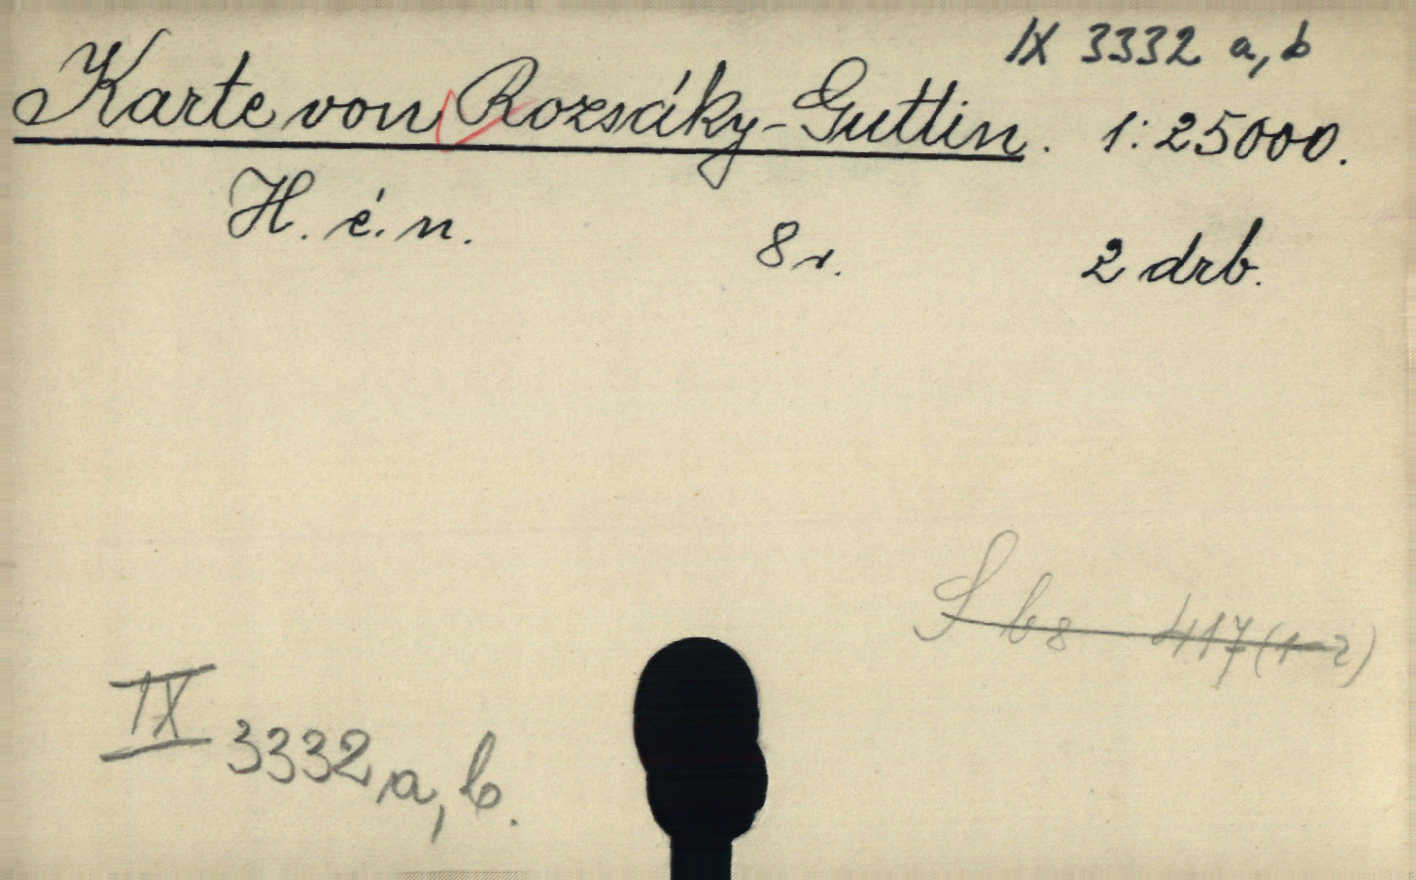 IX 3332 a, b
Karte von Rozsáky-Guttin. 1:25000.
H. é. n. 8r. 2 drb.
S b8 417(1-2)
IX 3332 a, b.